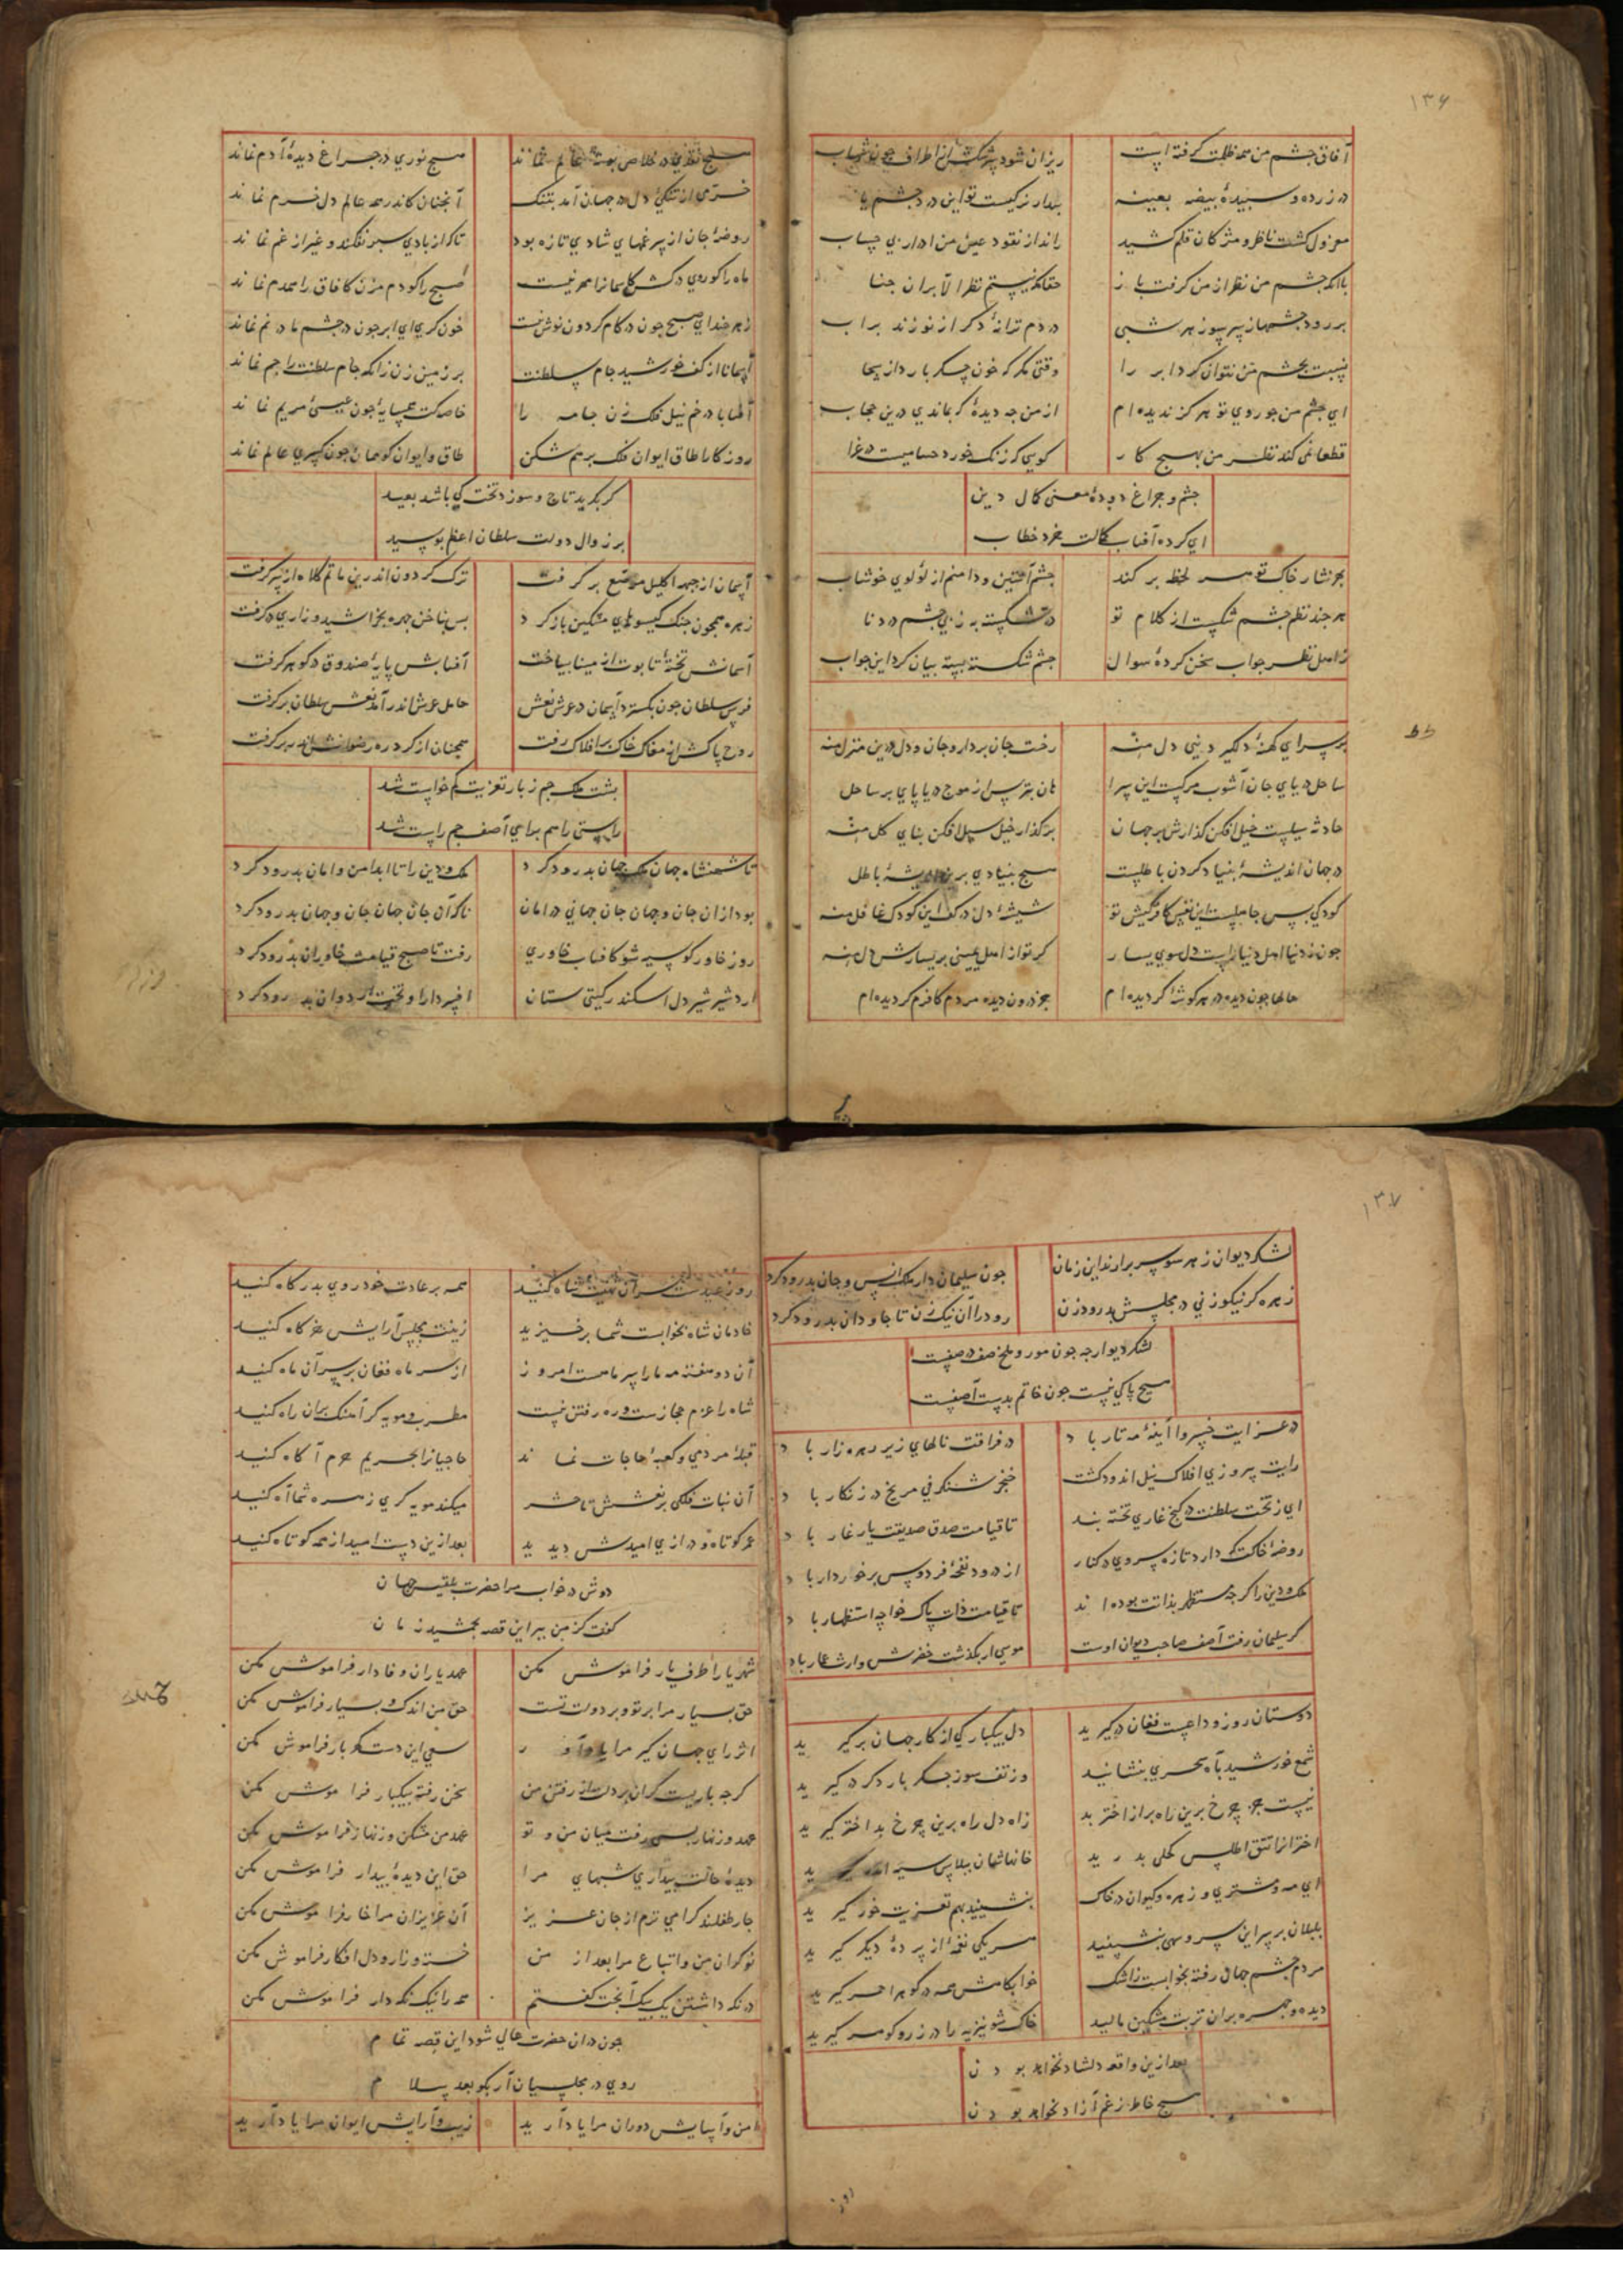 ۱۳۶
آفاق جشم من همه ظلمت کرفته است ریزان شود سرشکش از اطراف جون شهاب
در زرده و سبیده بیضه بعینه
معزول کشت ناظر و مژکان قلم کشید راند از نقود عین من ادراری حساب
باآنکه جشم من نظر از من کرفت باز حقا که نیستم نظر الا بران جناب
بر رود جشمها ز سر سوز هر شبی هر دم ترانۀ دکر از نو زند بر آب
نسبت بجشم من نتوان کرد ابر را وقتی مکر که خون جکر بارد از سحاب
ای جشم من جو روی تو هرکز ندیده‌ام از من جه دیدۀ که بماندی درین حجاب
قطعا نمی کند نظر من بهیج کار
جشم و جراغ دودۀ معنی کمال دین
ای کرده آفتاب کمالت خرد خطاب
بهر نثار خاک تو هر لحظه بر کند جشم آستین و دامنم از لؤلوی خوشاب
هر جند نظم جشم شکست از کلام تو
ز اهل نظر جواب سخن کردۀ سوال جشم شکسته بسته بیان کرد این جواب
بر سرای کهنۀ دلکیر دنیی دل منه رخت جان بردار و جان و دل درین منزل منه
ساحل دریای جان آشوب مرکست این سرا هان بترس از موج دریا پای بر ساحل منه
حادثه سیلیست خیل افکن کذارش بر جهان بر کذار خیل سیل افکن بنای کل منه
در جهان اندیشۀ بنیاد کردن باطلست هیج بنیادی برین اندیشۀ باطل منه
کودکی بس جاهلست این نفس کافر کیش تو شیشۀ دل در کف این کودک غافل منه
جون ز دنیا اهل دنیا راست دل سوی یسار کر تو از اهل یمینی بر یسارش دل منه
سالها جون دیده در هر کوشۀ کردیده ام جز درون دیده مردم کافرم کر دیده ام
هیج نوری در جراغ دیدۀ آدم نماند
خرمی از تنکی دل در جهان آمد بتنک آنجنان کاندر همه عالم دل خرم نماند
روضۀ جان از سبرغمهای شادی تازه بود تاکر از بادی سبر نفکند و غیر از غم نماند
ماه را کو روی درکش کاسمانرا مهر نیست صبح را کو دم مزن کافاق را همدم نماند
زهر خند ای صبح جون در کام کردون نوش نیست خون کری ای ابر جون در جشم ما در نم نماند
آسمانا از کف خورشید جام سلطنت بر زمین زن زانکه جام سلطنت را جم نماند
آفتابا در خم نیل فلک زن جامه را خاصه کت همسایۀ جون عیسی مریم نماند
روزکارا طاق ایوان فلک بر هم شکن طاق و ایوان کو ممان جون کسری عالم نماند
کر بکرید تاج و سوزد تخت کی باشد بعید
بر زوال دولت سلطان اعظم بوسعید
آسمان از جبهه اکلیل مرصع بر کرفت ترک کردون اندرین ماتم کلاه از سر کرفت
زهره همجون جنک کیسوهای مشکین باز کرد بس بناخن جهره بخراشید و زاری در کرفت
آسمانش تختۀ تابوت از مینا بساخت آفتابش پایۀ صندوق در کوهر کرفت
فرس سلطان جون بکسترد آسمان در عرش نعش حامل عرش اندر آمد نعش سلطان بر کرفت
روح پاکش از مغاک خاک بر افلاک رفت همجنان از کرد ره رضوانش اندر بر کرفت
بشت ملک جم ز بار تعزیت خم خواست شد
راستی را هم برای آصف جم راست شد
تا شهنشاه جهان ملک جهان بدرود کرد ملک و دین را تا ابد امن و امان بدرود کرد
بود ازان جان و جهان جان جهانی در امان ناکه آن جان جهان جان و جهان بدرود کرد
روز خاور کو سیه شو کافتاب خاوری رفت تا صبح قیامت خاوران بدرود کرد
اردشیر شیر دل اسکندر کیتی ستان افسر دارا و تخت اردوان بدرود کرد
۱۳۷
لشکر دیوان ز هر سو سر برارند این زمان جون سلیمان دار ملک انس و جان بدرود کرد
زهره کر نیکو زنی در مجلسش بدرود زن رود را آن نیک زن تا جاودان بدرود کرد
لشکر دیو ارجه جون مور و ملخ صف در صفست
هیج باکی نیست جون خاتم بدست آصفست
در عزایت خسروا آینۀ مه تار باد در فراقت نالهای زیر زهره زار باد
رایت پیروزی افلاک نیل اندود کشت خنجر شنکرفی مریخ در زنکار باد
ای ز تخت سلطنت در کنج غاری تخته بند تا قیامت صدق صدیقت یار غار باد
روضۀ خاکت که دارد تازه سروی در کنار از درود نفحۀ فردوس برخوردار باد
ملک و دین را کر جه مستظهر بذاتت بوده اند تا قیامت ذات پاک خواجه استظهار باد
کر سلیمان رفت آصف صاحب دیوان اوست موسی ار بکذشت خضرش وارث اعمار باد
دوستان روز وداعست فغان درکیرید دل بیکبارکی از کار جهان برکیرید
شمع خورشید بآه سحری بنشانید وز تف سوز جکر بار دکر درکیرید
نیست جز جرخ برین راه بر از اختر بد زاه دل راه برین جرخ بد اختر کیرید
اختران را تتق اطلس کحلی بدرید خانهاشان ببلاس سیه اندر کیرید
ای مه و مشتری و زهره و کیوان در خاک بنشینید بهم تعزیت خور کیرید
بلبلان بر سر این سرو سهی بنشینید هر یکی نغمۀ از پردۀ دیکر کیرید
مردم جشم جهان رفته بخوابست ز اشک خوابکاهش همه در کوهر احمر کیرید
دیده و جهره بران تربت مشکین مالید خاک شونیزیه را در زر و کوهر کیرید
بعد ازین واقعه دلشاد نخواهد بودن
هیج خاطر ز غم آزاد نخواهد بودن
همه بر عادت خود روی بدرکاه کنید
خادمان شاه بخوابست شما برخیزید زینت مجلس و آرایش خرکاه کنید
آن دو هفته مه ما را سر ماهست امروز از سر ماه فغان بر سر آن ماه کنید
شاه را عزم حجازست و ره رفتن نیست مطرب و مویه کر آهنک بران راه کنید
قبلۀ مردمی و کعبۀ حاجات نماند حاجیانرا بحریم حرم آکاه کنید
آن بنات فلکی بر نعشش تا حشر میکند مویه کری زهره شما آه کنید
عمر کوتاه و درازی امیدش دیدید بعد ازین دست امید از همه کوتاه کنید
دوش در خواب مرا حضرت بلقیس جهان
کفت کز من ببر این قصه بجمشید زمان
شهریارا طرف یار فراموش مکن عهد یاران وفادار فراموش مکن
حق بسیار مرا بر تو و بر دولت تست حق من اندک و بسیار فراموش مکن
اثر رای جهان کیر مرا یاد آور سعی این دست کهربار فراموش مکن
کر جه باریست کران بر دلت از رفتن من سخن رفته بیکبار فراموش مکن
عهد و زنهار بسی رفت میان من و تو عهد من مشکن و زنهار فراموش مکن
دیدۀ حالت بیداری شبهای مرا حق این دیدۀ بیدار فراموش مکن
جار طفلند کرامی ترم از جان عزیز آن عزیزان مرا خار فراموش مکن
نوکران من و اتباع مرا بعد از من خسته و زار و دل افکار فراموش مکن
در نکه داشتن یک بیک آنجت کفتم همه را نیک نکه دار فراموش مکن
جون دران حضرت عالی شود این قصه تمام
روی در مجلسیان آر بکو بعد سلام
امن و آسایش دوران مرا یاد آرید زیب و آرایش ایوان مرا یاد آرید